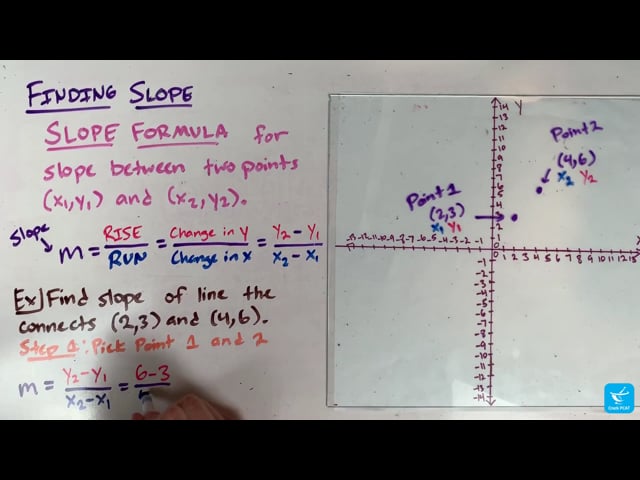 FINDING SLOPE
SLOPE FORMULA for
slope between two points
(x₁,y₁) and (x₂,y₂).
Slope
m = RISE/RUN = Change in Y/Change in X = Y₂ - Y₁/X₂ - X₁
Ex) Find slope of line the
connects (2,3) and (4,6).
Step 1: Pick Point 1 and 2
m = Y₂-Y₁/X₂-X₁ = 6-3/
Y
14
13
12
11
10
9
8
7
6
5
4
3
2
1
0
Point 2
(4,6)
X₂ Y₂
Point 1
(2,3)
X₁ Y₁
-13 -12 -11 -10 -9 -8 -7 -6 -5 -4 -3 -2 -1
1 2 3 4 5 6 7 8 9 10 11 12 13
X
-1
-2
-3
-4
-5
-6
-7
-8
-9
-10
-11
-12
-13
-14
Crash PCAT